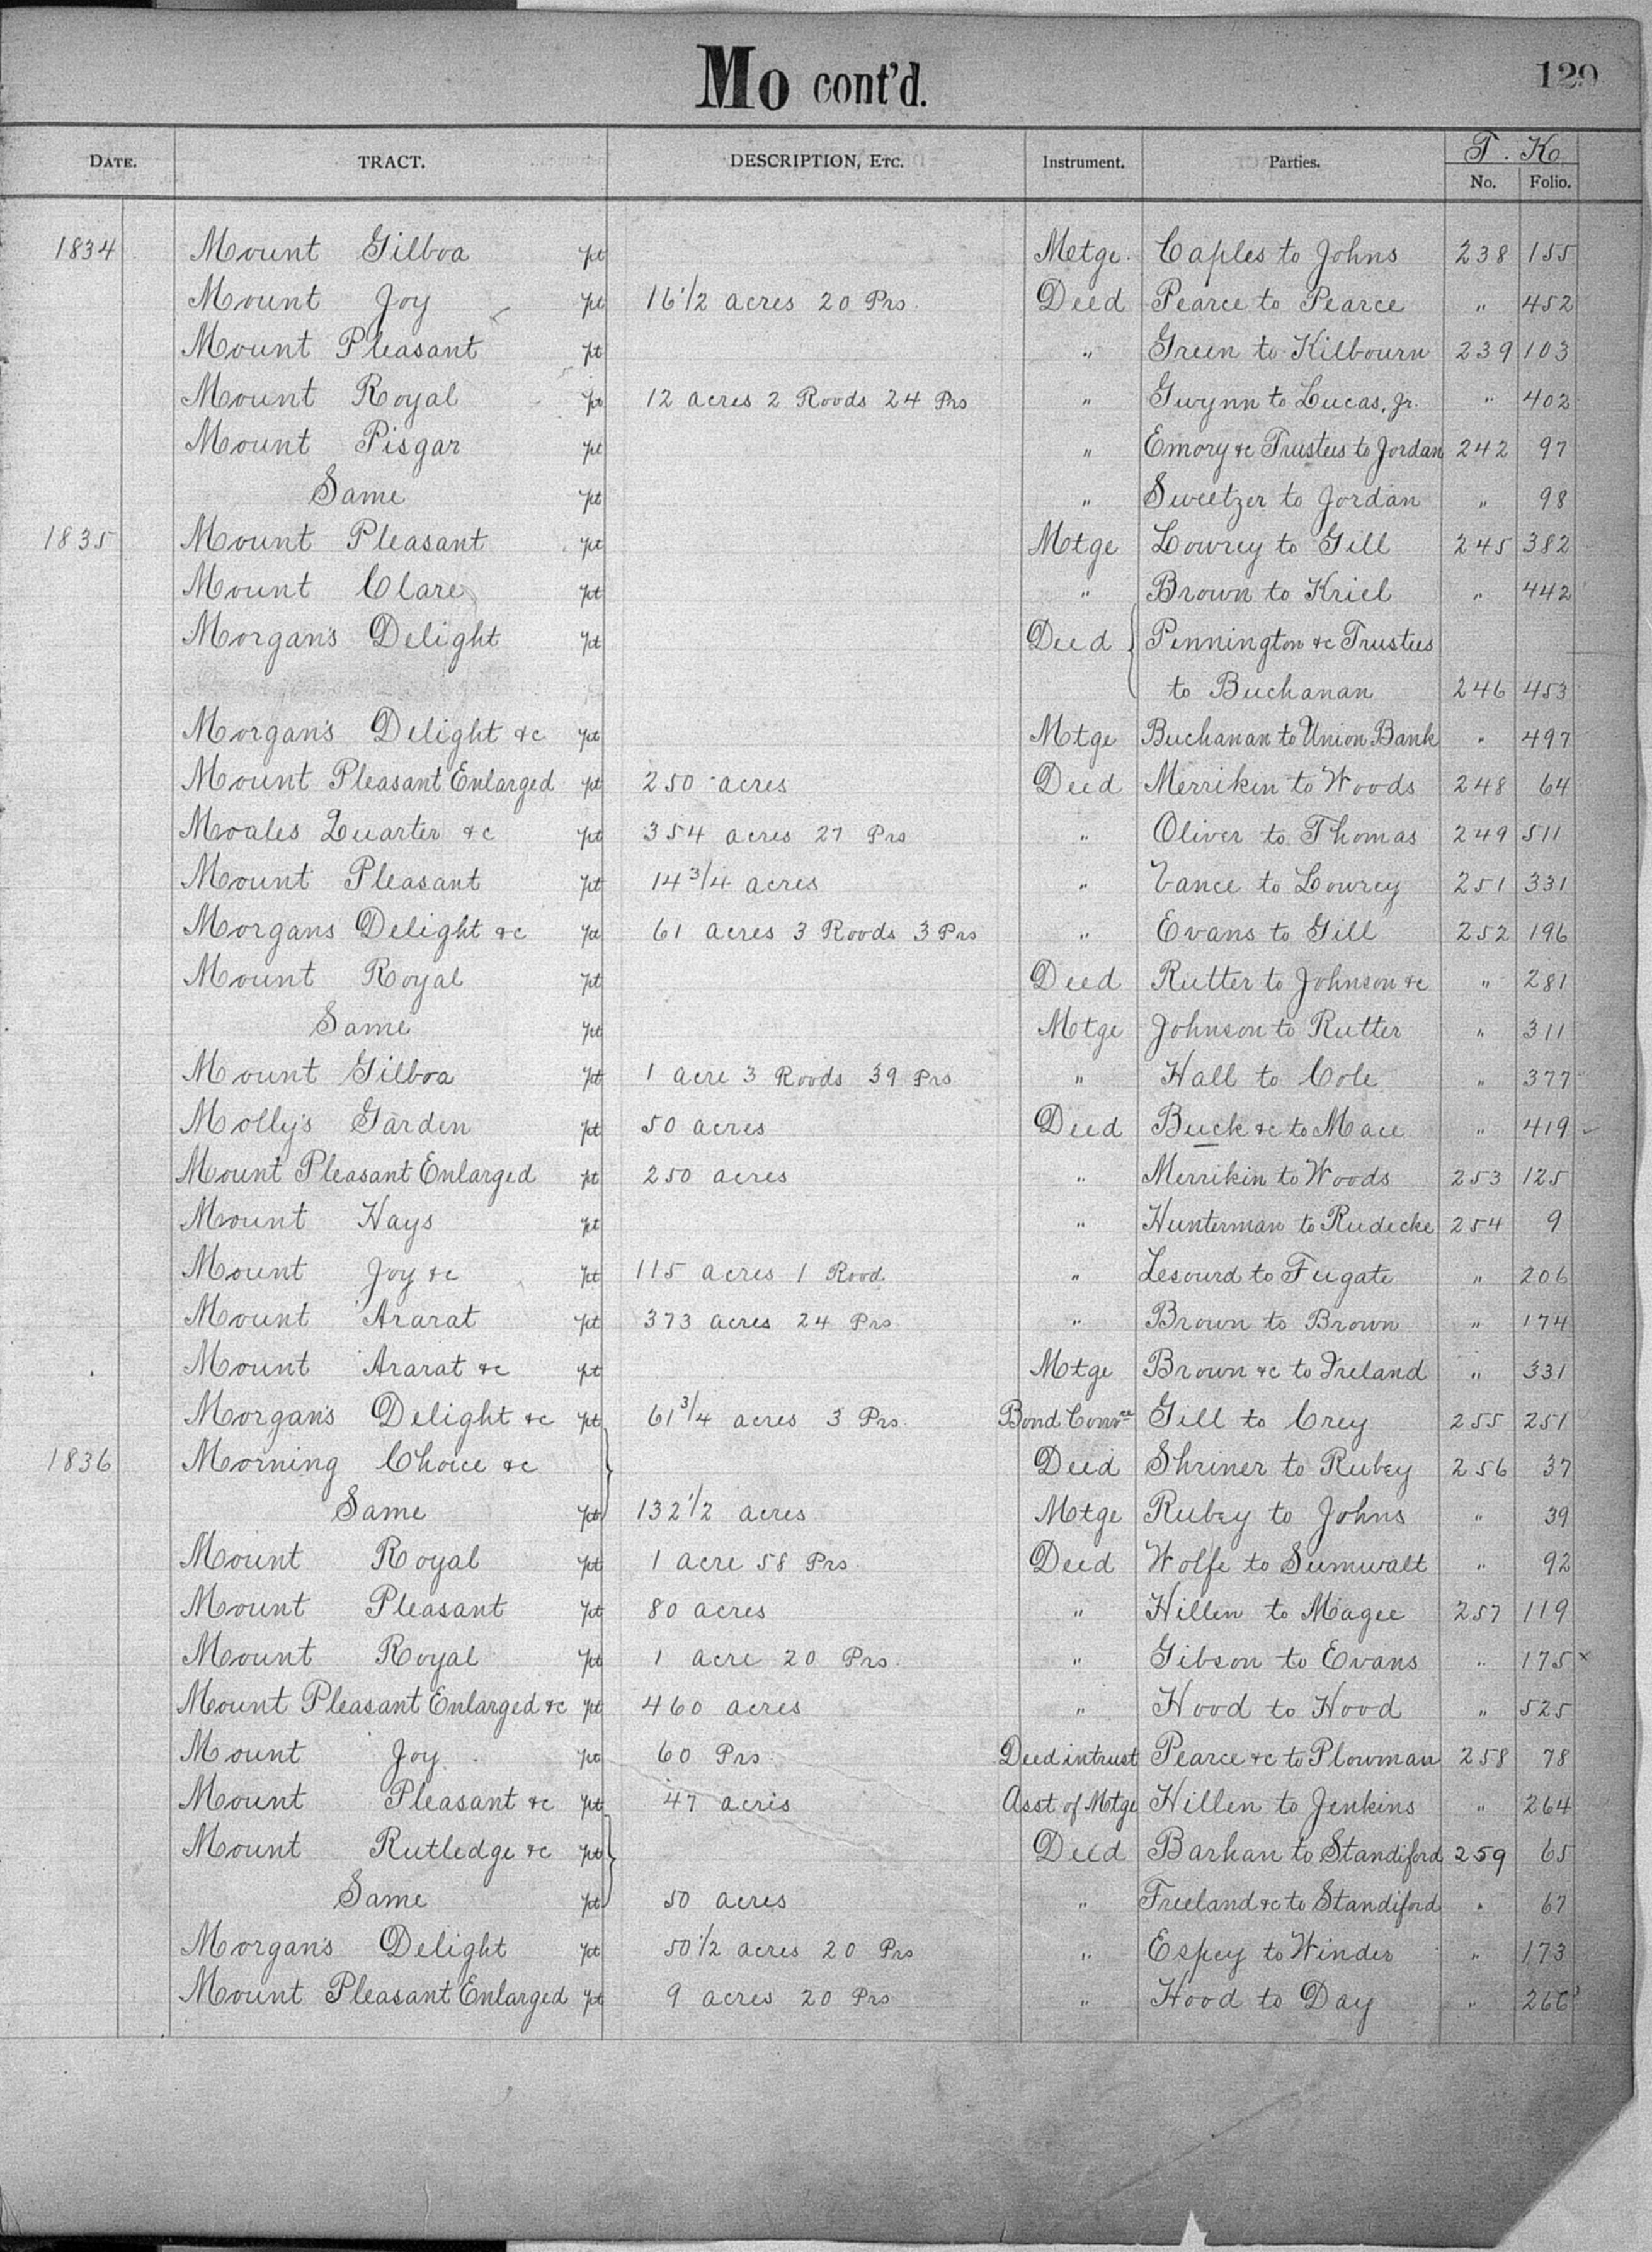 Mo cont'd.
129
DATE. TRACT. DESCRIPTION, ETC. Instrument. Parties. T. K.
No. Folio.
1834 Mount Gilboa pt Mtge. Caples to Johns 238 155
Mount Joy pt 16 1/2 acres 20 Prs. Deed Pearce to Pearce " 452
Mount Pleasant pt " Green to Kilbourn 239 103
Mount Royal pt 12 acres 2 Roods 24 Prs " Gwynn to Lucas, Jr. " 402
Mount Pisgar pt " Emory &c Trustees to Jordan 242 97
Same pt " Sweetzer to Jordan " 98
1835 Mount Pleasant pt Mtge Lowrey to Gill 245 382
Mount Clare pt " Brown to Kriel " 442
Morgan's Delight pt Deed { Pennington &c Trustees
to Buchanan 246 453
Morgan's Delight &c pt Mtge Buchanan to Union Bank " 497
Mount Pleasant Enlarged pt 250 acres Deed Merriken to Woods 248 64
Moales Quarter &c pt 354 acres 27 Prs " Oliver to Thomas 249 511
Mount Pleasant pt 14 3/4 acres " Vance to Lowrey 251 331
Morgans Delight &c pt 61 acres 3 Roods 3 Prs " Evans to Gill 252 196
Mount Royal pt Deed Rutter to Johnson &c " 281
Same pt Mtge Johnson to Rutter " 311
Mount Gilboa pt 1 acre 3 Roods 39 Prs " Hall to Cole " 377
Molly's Garden pt 50 acres Deed Buck &c to Mace " 419
Mount Pleasant Enlarged pt 250 acres " Merrikin to Woods 253 125
Mount Hays pt " Hunterman to Rudecke 254 9
Mount Joy &c pt 115 acres 1 Rood " Lesourd to Fugate " 206
Mount Ararat pt 373 acres 24 Prs " Brown to Brown " 174
Mount Ararat &c pt Mtge Brown &c to Ireland " 331
Morgan's Delight &c pt 61 3/4 acres 3 Prs. Bond Convce Gill to Crey 255 251
1836 Morning Choice &c } Deed Shriner to Rubey 256 37
Same pt 132 1/2 acres Mtge Rubey to Johns " 39
Mount Royal pt 1 acre 58 Prs. Deed Wolfe to Sumwalt " 92
Mount Pleasant pt 80 acres " Hillen to Magee 257 119
Mount Royal pt 1 acre 20 Prs. " Gibson to Evans " 175 x
Mount Pleasant Enlarged &c pt 460 acres " Hood to Hood " 525
Mount Joy pt 60 Prs. Deed in trust Pearce &c to Plowman 258 78
Mount Pleasant &c pt 47 acres Asst of Mtge Hillen to Jenkins " 264
Mount Rutledge &c pt } Deed Barhan to Standiford 259 65
Same pt 50 acres " Freeland &c to Standiford " 67
Morgan's Delight pt 50 1/2 acres 20 Prs " Espey to Winder " 173
Mount Pleasant Enlarged pt 9 acres 20 Prs " Hood to Day "